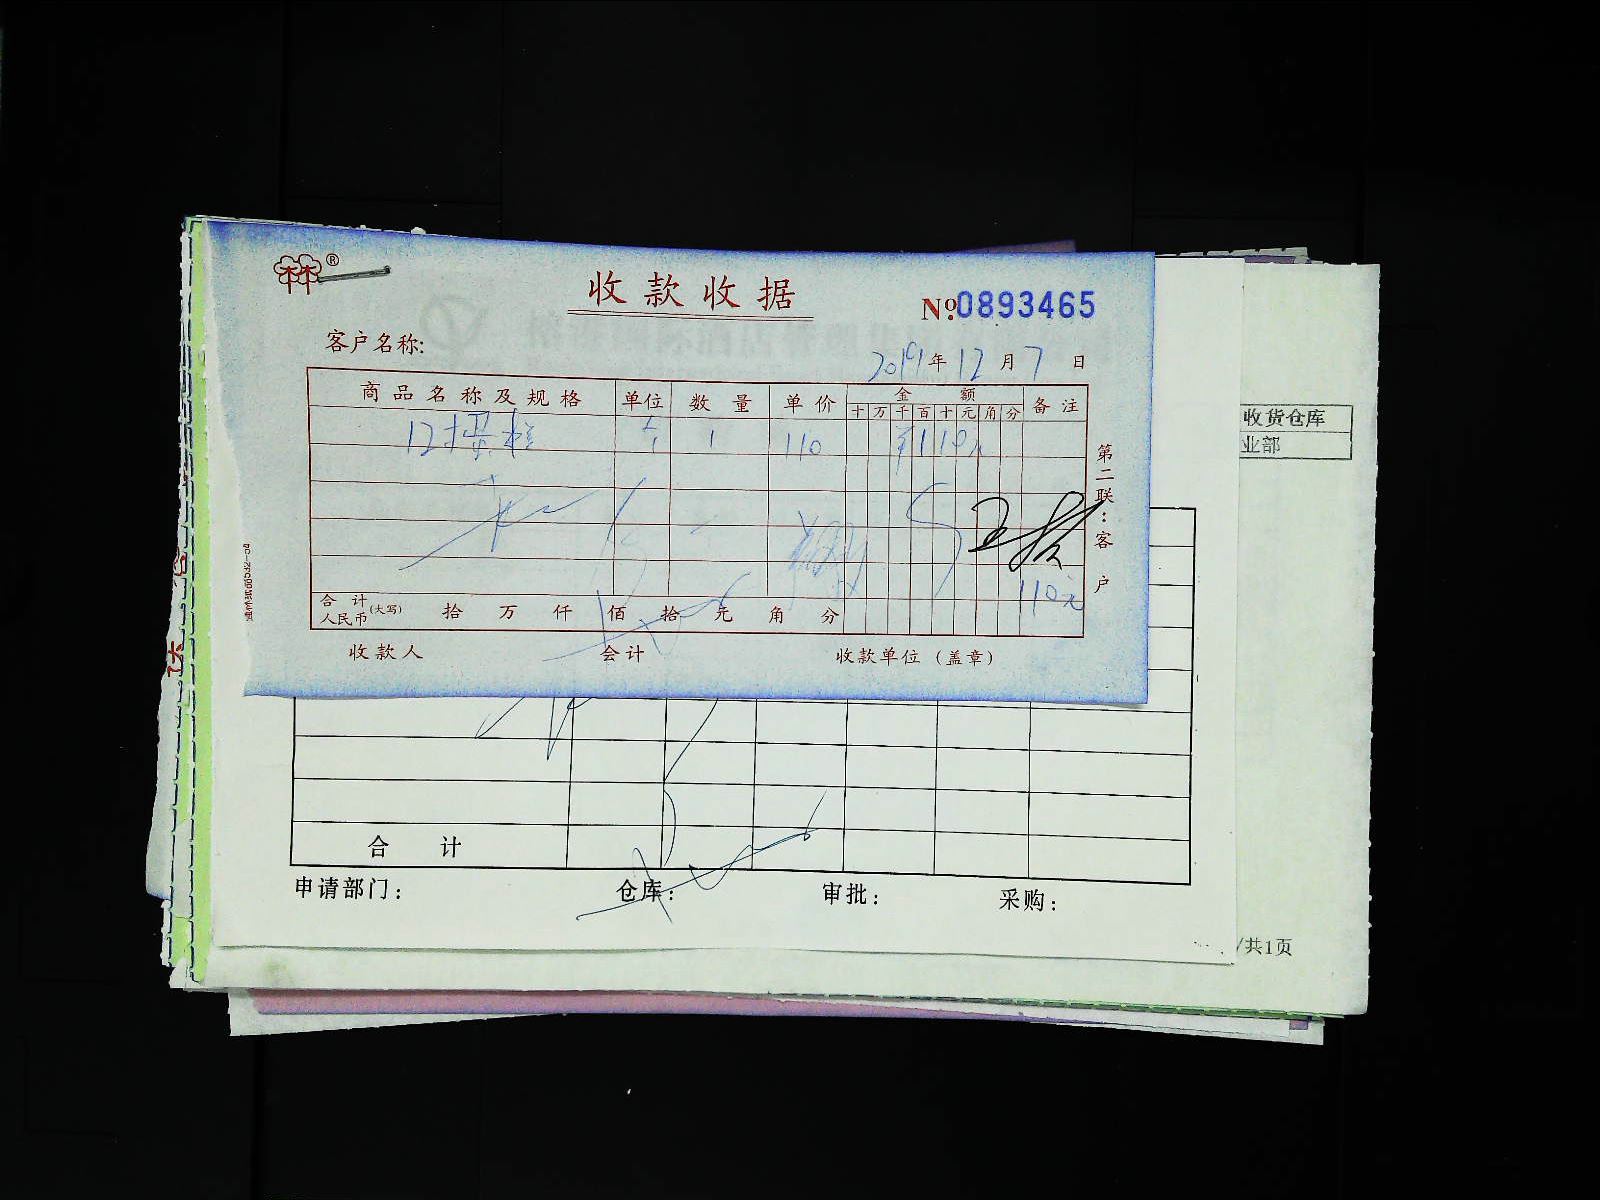 收款收据
№0893465
客户名称:
2019年12月7日
商品名称及规格 单位 数量 单价 金额 备注
十万千百十元角分
1 110 ¥110元
110元
合计人民币(大写) 拾 万 仟 佰 拾 元 角 分
收款人 会计 收款单位（盖章）
第二联：客户
收货仓库
业部
合计
申请部门： 仓库： 审批： 采购：
/共1页